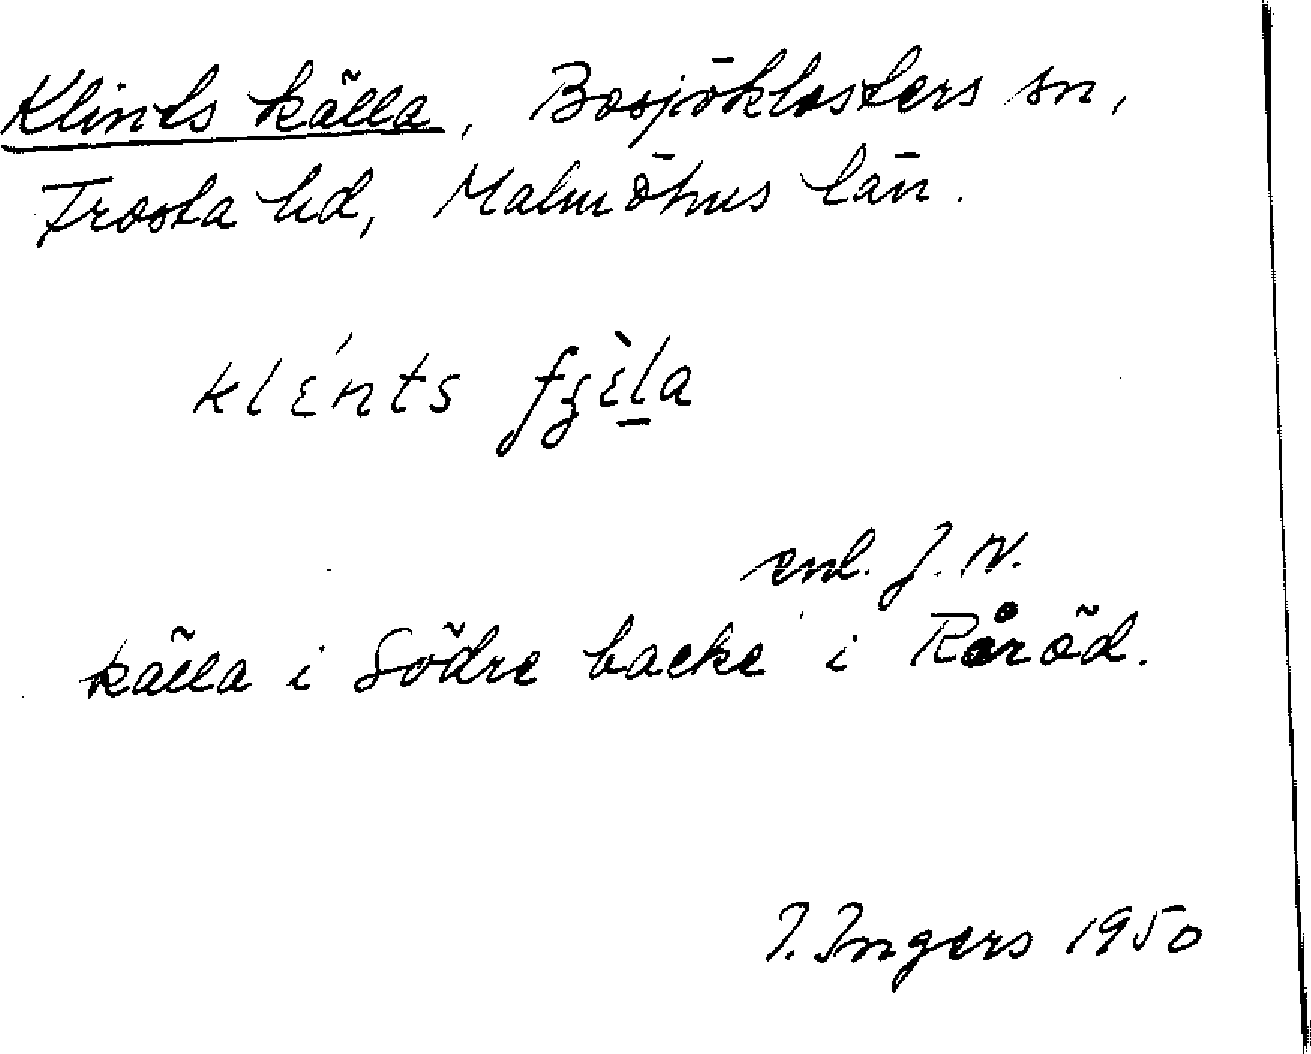 Klints källa, Bosjöklosters sn,
Frosta hd, Malmöhus län.
klɛ́nts
enl. J. N.
källa i Södre backe i Råröd.
I. Ingers 1950